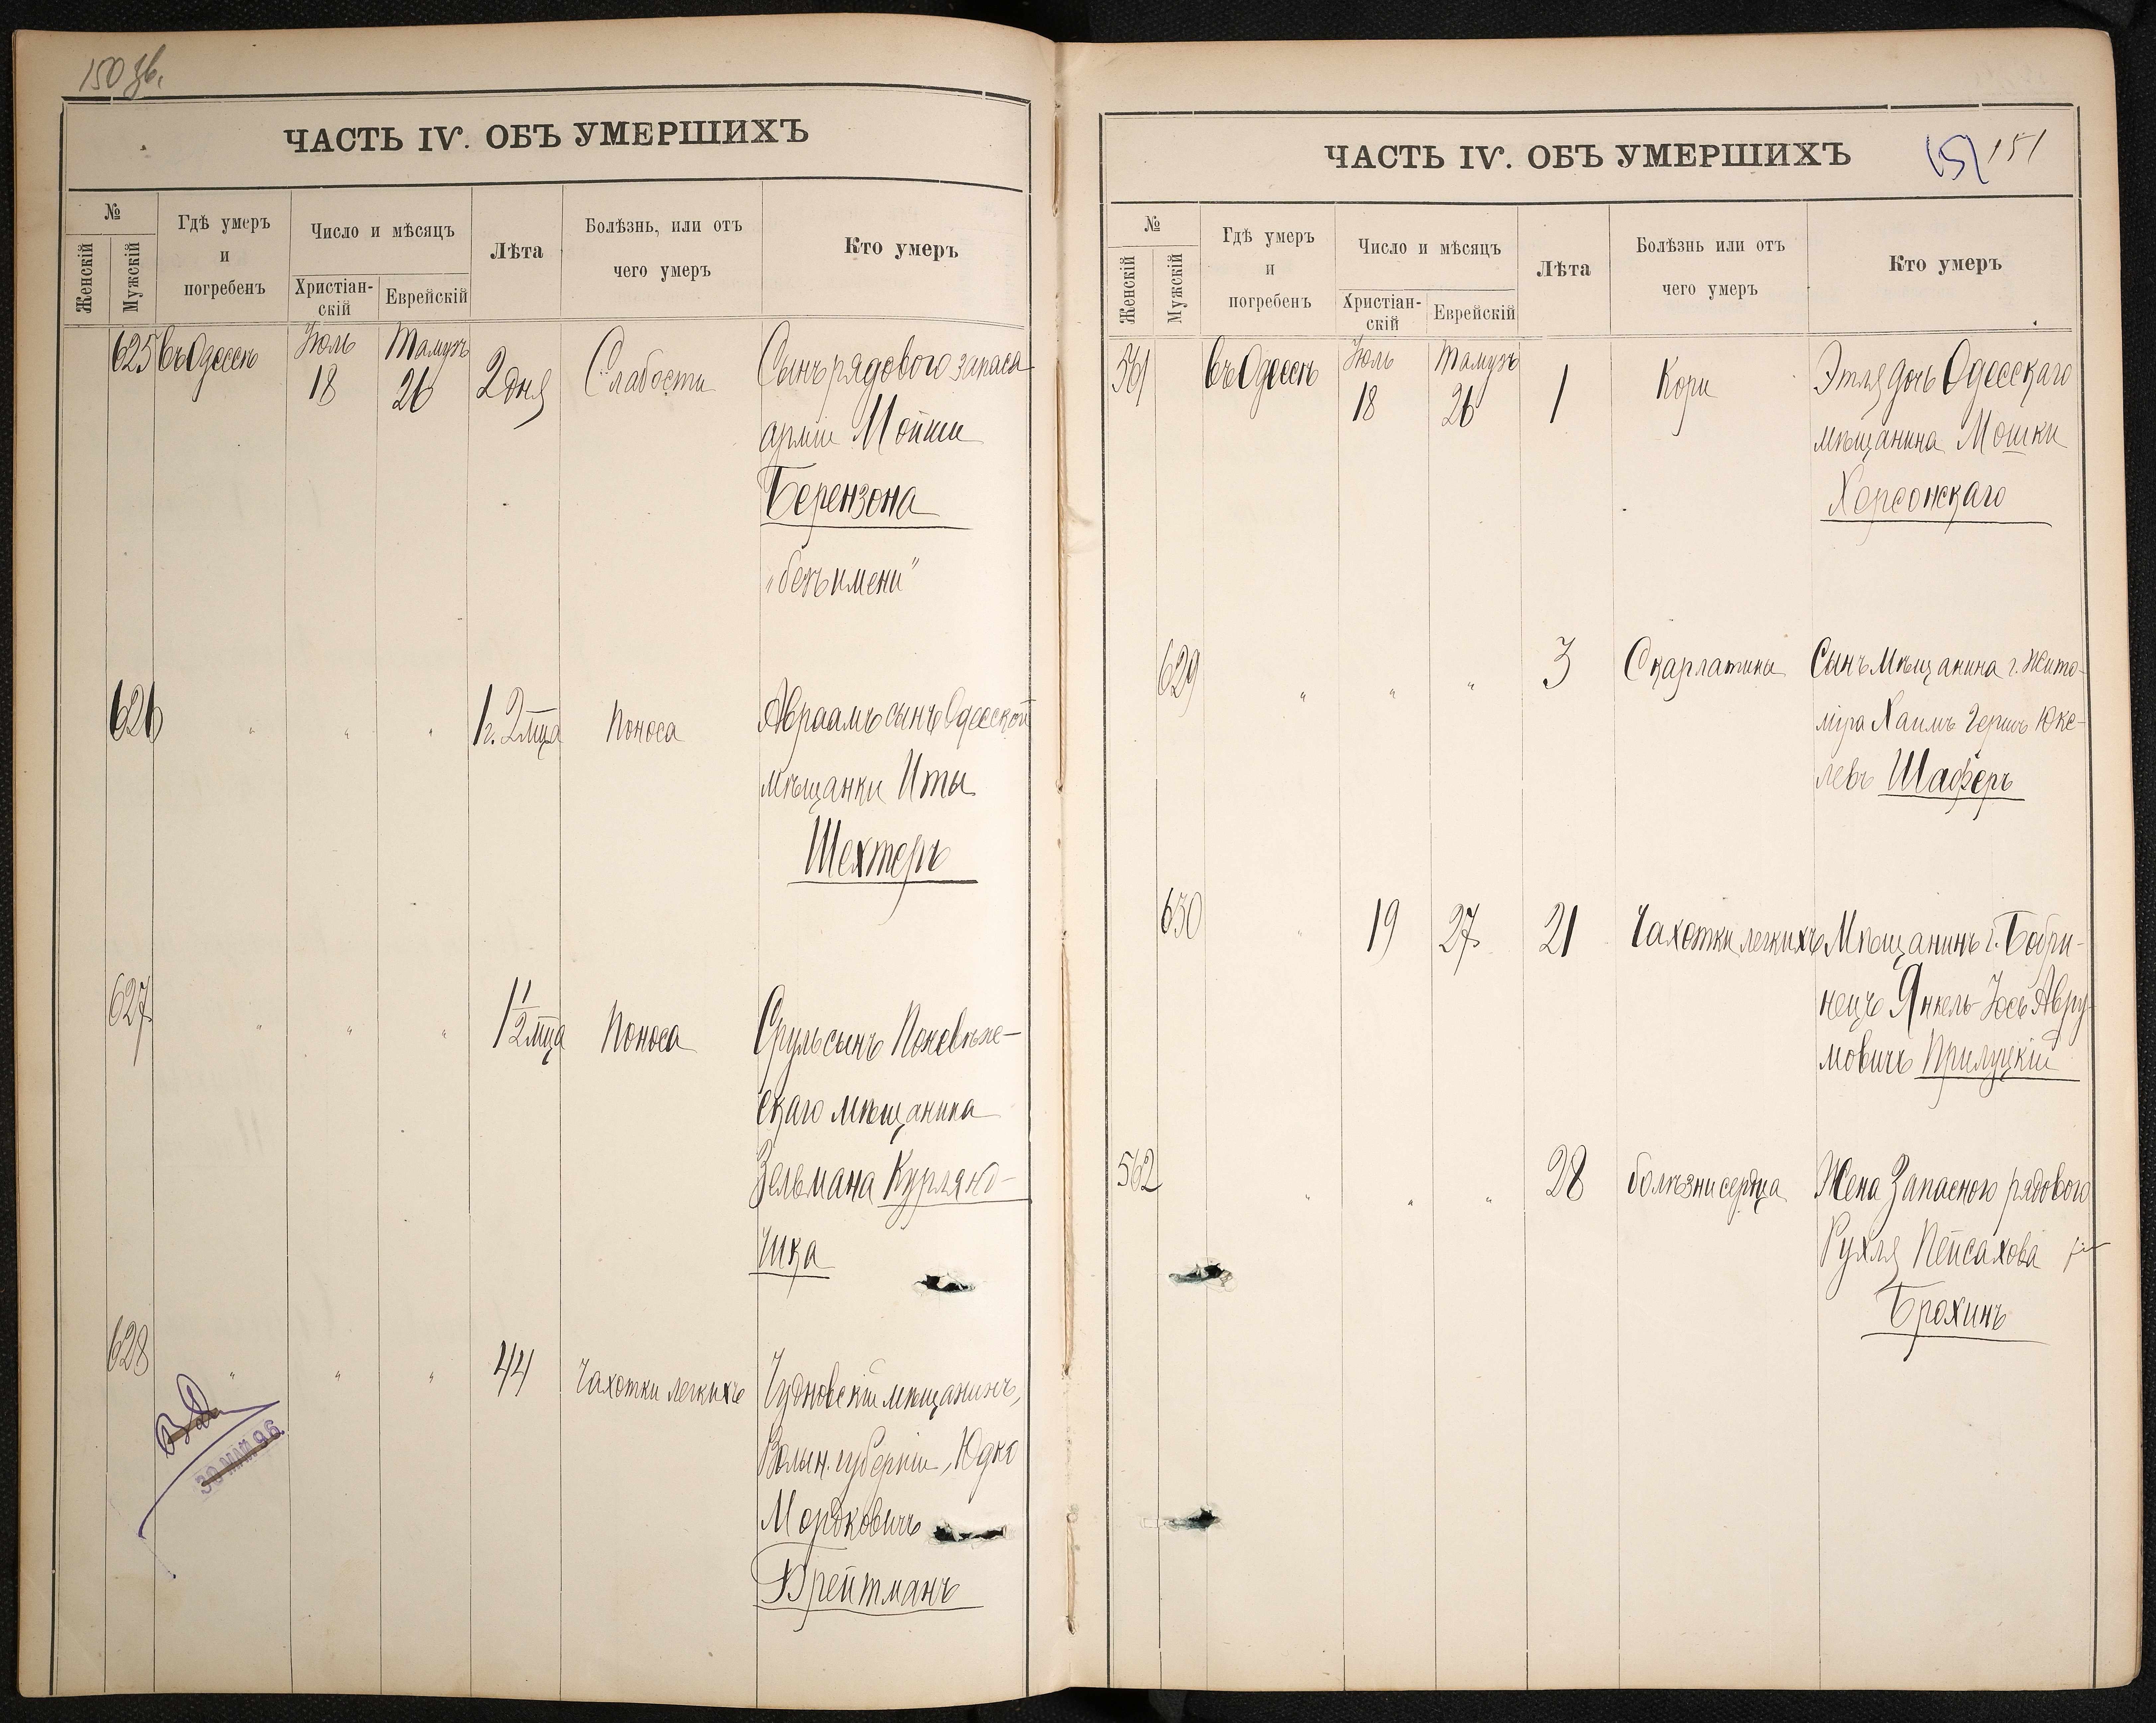 150 зв.
ЧАСТЬ IV. ОБЪ УМЕРШИХЪ
№
Женскій
Мужскій
Гдѣ умеръ
и
погребенъ
Число и мѣсяцъ
Христіан-
скій
Еврейскій
Лѣта
Болѣзнь, или отъ
чего умеръ
Кто умеръ
625 въ Одессѣ Іюль Тамузъ
18 26 2 дня Слабости Сынъ рядового запаса
арміи Мойши
Берензона
"безъ имени"
626 " " " 1 г. 2 мца Поноса Авраамъ сынъ Одесской
мѣщанки Иты
Шехтеръ
627 " " " 1 1/2 мца Поноса Сруль сынъ Поневѣже-
скаго мѣщанина
Зельмана Курлянд-
чика
628 " " " 44 Чахотки легкихъ Чудновскій мѣщанинъ,
Волын. губерніи, Юдко
Мордковичъ
Брейтманъ
30 МАЙ 96
ЧАСТЬ IV. ОБЪ УМЕРШИХЪ
151 151
№
Женскій
Мужскій
Гдѣ умеръ
и
погребенъ
Число и мѣсяцъ
Христіан-
скій
Еврейскій
Лѣта
Болѣзнь или отъ
чего умеръ
Кто умеръ
561 въ Одессѣ Іюль Тамузъ
18 26 1 Кори Этля дочь Одесскаго
мѣщанина Мошки
Херсонскаго
629 " " " 3 Скарлатины Сынъ мѣщанина г. Жито-
міра Хаимъ Гершъ Юке-
левъ Шаферъ
630 " 19 27 21 Чахотки легкихъ Мѣщанинъ г. Бобри-
нецъ Янкель-Іось Авру-
мовичъ Прилуцкій
562 " " " 28 болѣзни сердца Жена Запасного рядового
Рухля Пейсахова
Брохинъ